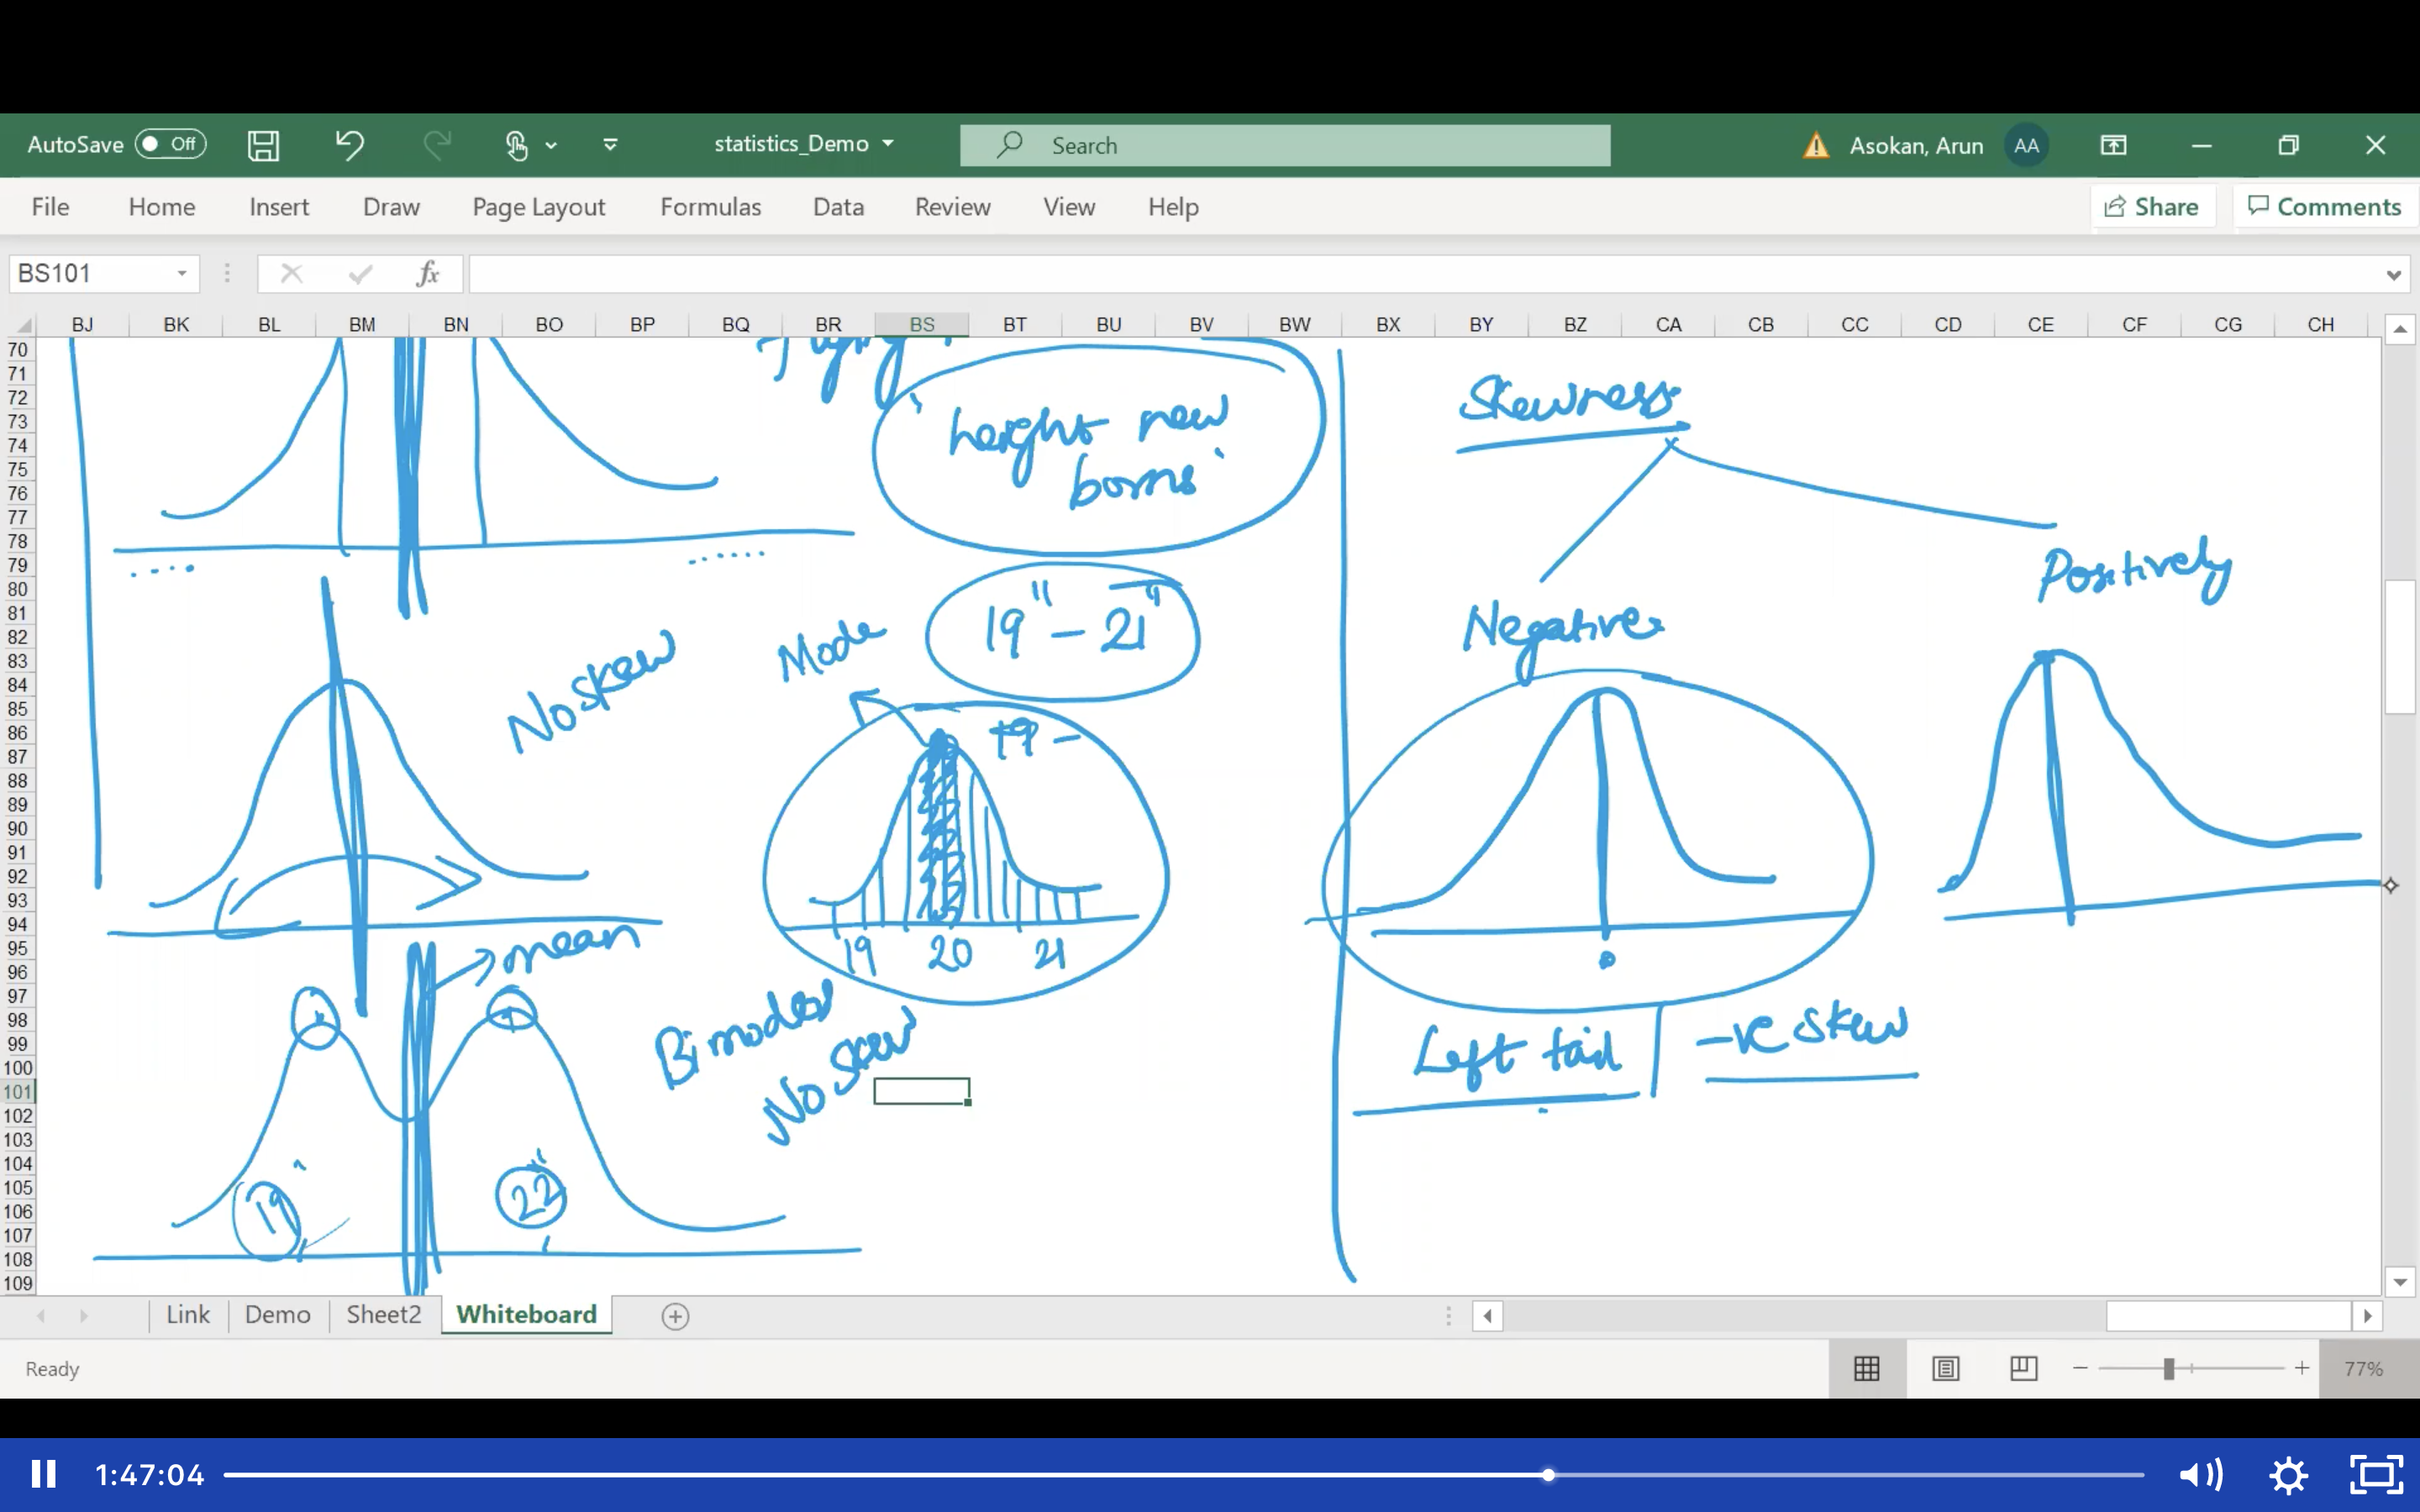 AutoSave Off statistics_Demo Search Asokan, Arun AA
File Home Insert Draw Page Layout Formulas Data Review View Help Share Comments
BS101 fx
BJ BK BL BM BN BO BP BQ BR BS BT BU BV BW BX BY BZ CA CB CC CD CE CF CG CH
70
71
72
73
74
75
76
77
78
79
80
81
82
83
84
85
86
87
88
89
90
91
92
93
94
95
96
97
98
99
100
101
102
103
104
105
106
107
108
109
'height new
borns'
19" - 21"
No skew
Mode
19 -
19 20 21
mean
Bimodal
No skew
19
22"
Skewness
Negative
Positively
Left tail
-ve skew
Link Demo Sheet2 Whiteboard
Ready 77%
1:47:04